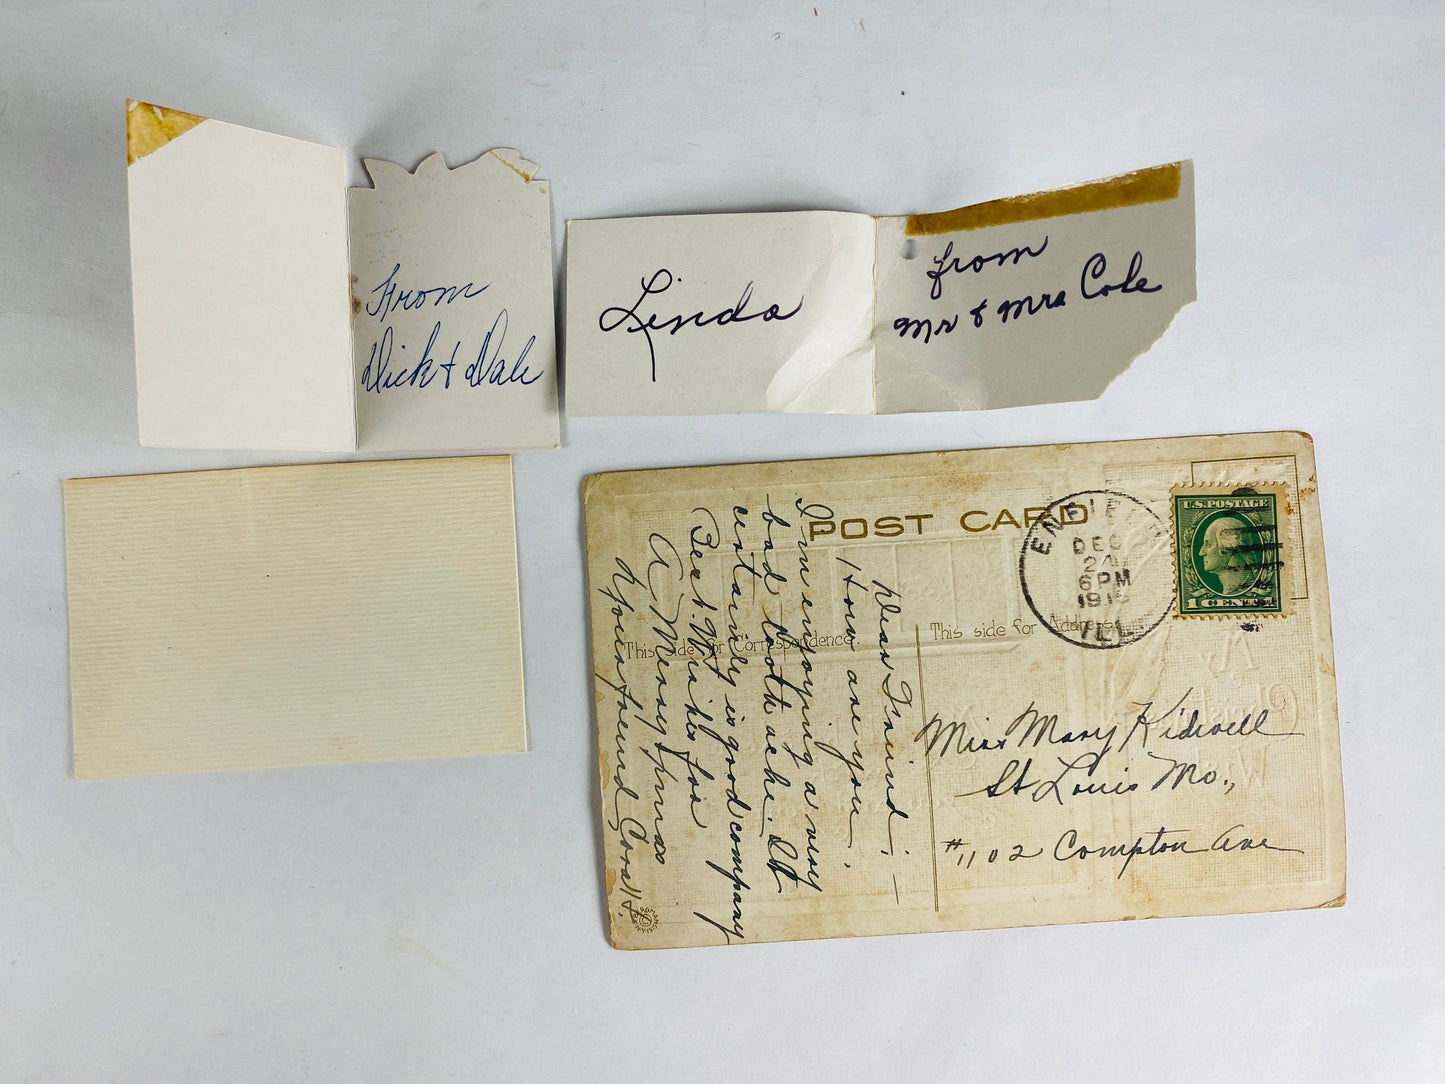 From
Dick & Dale
Linda
from
Mr & Mrs Cole
POST CARD
This side for Correspondence.
This side for Address
ENFIELD
DEC
24
6 PM
ILL.
U.S. POSTAGE
1 CENT 1
Dear Freind:—
How are you.
I'm enjoying a very
bad tooth ache. It
certainly is good company
Best Wishes for
A Merry Xmas
Your freind Cora H.
Miss Mary Kidwell
St Louis Mo.,
#1102 Compton Ave